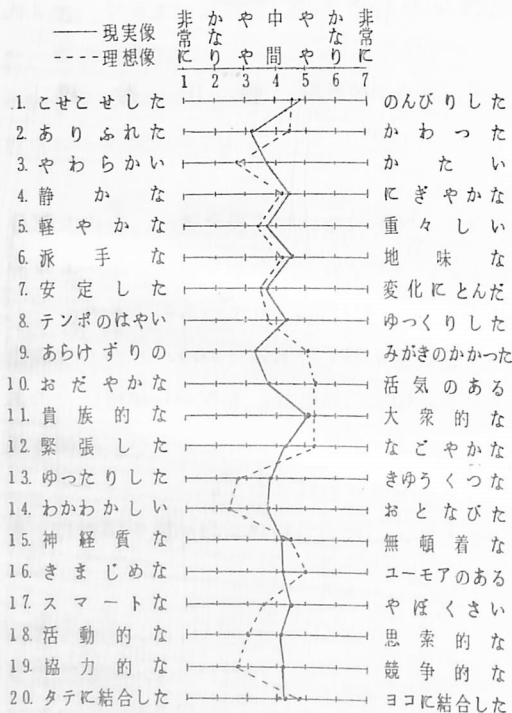 現実像
理想像
非常に かなり やや 中間 やや かなり 非常に
1 2 3 4 5 6 7
1. こせこせした のんびりした
2. ありふれた かわった
3. やわらかい かたい
4. 静かな にぎやかな
5. 軽やかな 重々しい
6. 派手な 地味な
7. 安定した 変化にとんだ
8. テンポのはやい ゆっくりした
9. あらけずりの みがきのかかった
10. おだやかな 活気のある
11. 貴族的な 大衆的な
12. 緊張した なごやかな
13. ゆったりした きゆうくつな
14. わかわかしい おとなびた
15. 神経質な 無頓着な
16. きまじめな ユーモアのある
17. スマートな やぼくさい
18. 活動的な 思索的な
19. 協力的な 競争的な
20. タテに結合した ヨコに結合した